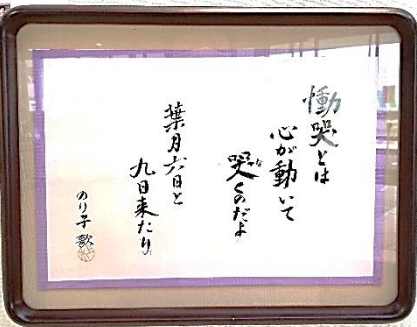 慟哭とは
心が動いて
哭くのだよ
葉月六日と
九日来たり
のり子 歌